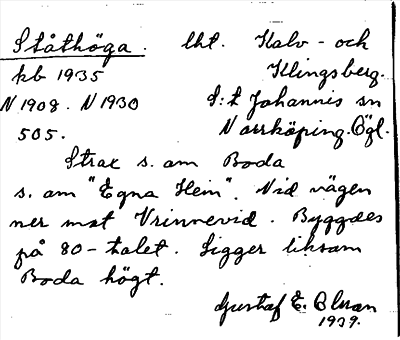 Ståthöga. lht. Kalv- och
kb 1935 Klingsberg.
N 1908. N 1930 S:t Johannis sn
505. Norrköping. Ögl.
Strax s. om Boda
s. om "Egna Hem". Vid vägen
ner mot Vrinnevid. Byggdes
på 80-talet. Ligger liksom
Boda högt.
Gustaf E. Olsson
1939.